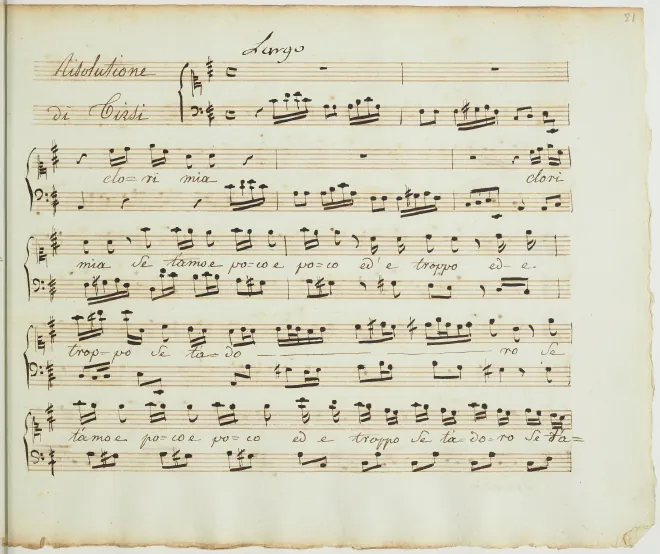 81
Largo
Risolutione
di Tirsi
clo=ri mia clori
mia se t'amo e po=co e po=co ed' e troppo ed=e.
trop=po se t'a=do ro se
t'amo e po=co e po=co ed e troppo se t'a=do=ro se t'a=